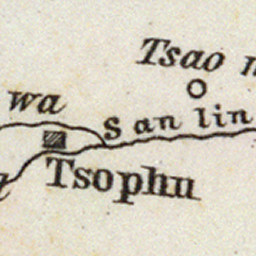 Tsao
wa
San lin
Tsophu